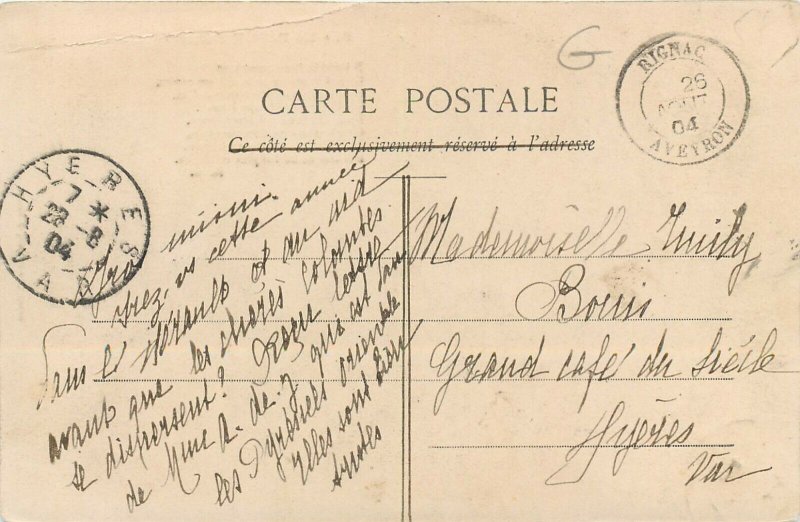 G
RIGNAC
26
AOUT
04
AVEYRON
CARTE POSTALE
Ce côté est exclusivement réservé à l'adresse
HYERES
7 *
28 - 8
04
VAR
irez vs cette année
Dans l'Hérault et au
avant que les chères colombes
se dispersent? Reçu lettre
de Mme A. de J. qui est dans
les Pyrénées orientale
Elles sont bien
tristes
Mademoiselle Emily
Grand café du Siècle
Hyères
Var